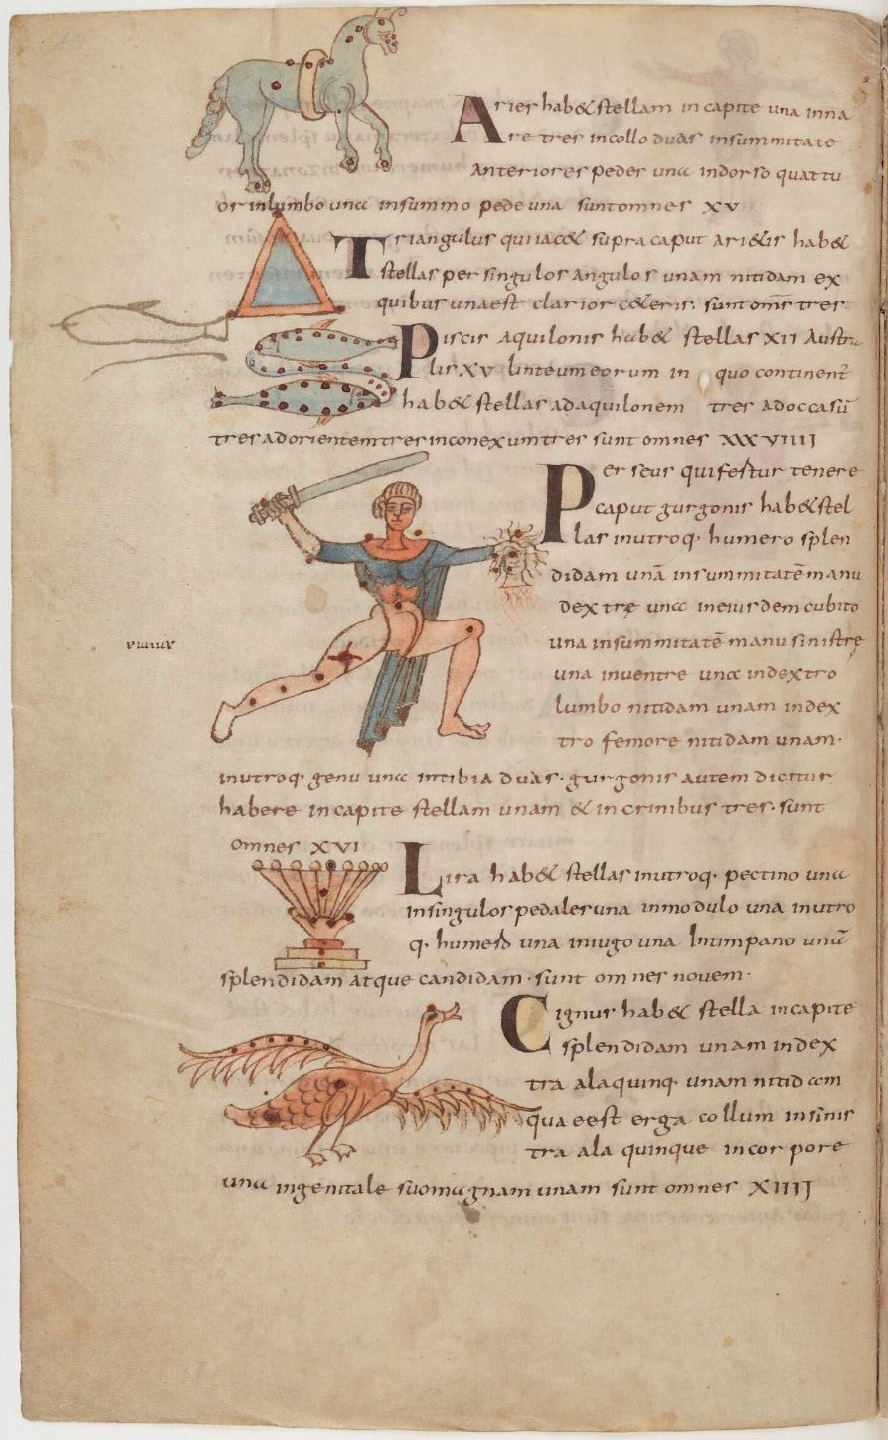 Aries hab& stellam in capite una inna
re tres in collo duas in summitate
Anteriores pedes una in dorso quattu
or in lumbo una in summo pede una sunt omnes XV
Triangulus qui iac& supra caput ari&is hab&
stellas per singulos angulos unam nitidam ex
quibus una est clarior c&eris. sunt oms tres
Piscis Aquilonis hab& stellas XII Austra
lis XV linteum eorum in quo continent
hab& stellas ad aquilonem tres ad occasū
tres ad orientem tres in conexum tres sunt omnes XXXVIIII
Perseus qui fertur tenere
caput gurgonis hab& stel
las in utroq. humero splen
didam unā in summitatē manu
dextre una in eiusdem cubito
una in summitatē manu sinistre
una in ventre una in dextro
lumbo nitidam unam in dex
tro femore nitidam unam.
in utroq. genu una in tibia duas. gurgonis autem dicitur
habere in capite stellam unam & in crinibus tres. sunt
omnes XVI
Lira hab& stellas in utroq. pectino una
in singulos pedales una in modulo una in utro
q. humero una in iugo una In timpano unā
splendidam atque candidam. sunt omnes novem.
Cignus hab& stella in capite
splendidam unam in dex
tra ala quinq. unam nitidam
quae est erga collum in sinis
tra ala quinque in corpore
una in genitale suo magnam unam sunt omnes XIIII